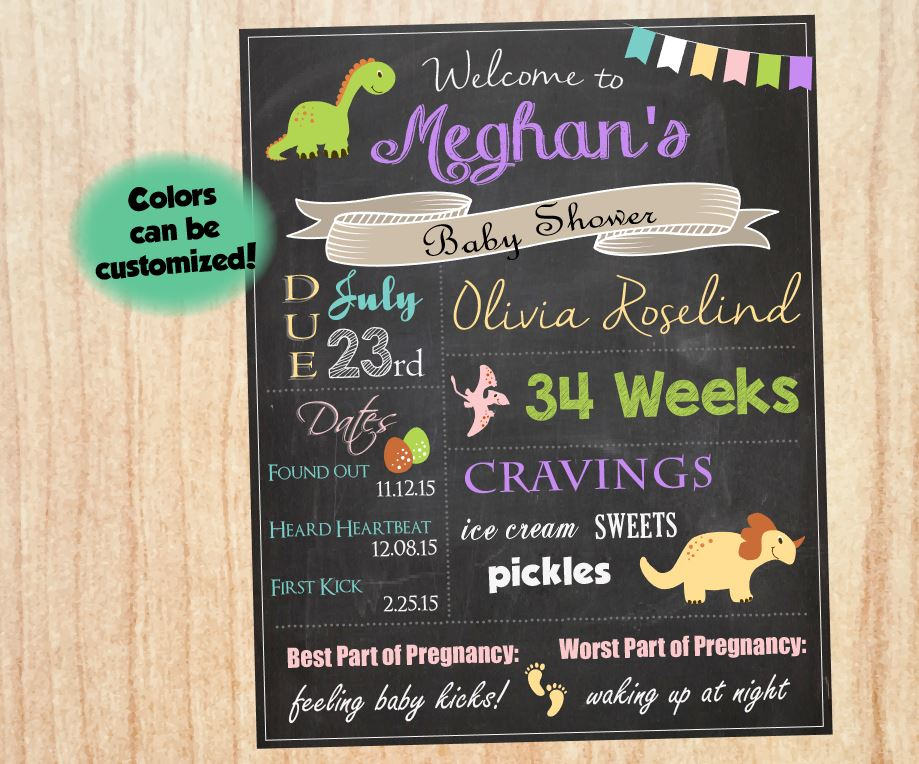 Colors
can be
customized!
Welcome to
Meghan's
Baby Shower
DUE
July
23rd
Olivia Roselind
34 Weeks
Dates
FOUND OUT
11.12.15
HEARD HEARTBEAT
12.08.15
FIRST KICK
2.25.15
CRAVINGS
ice cream SWEETS
pickles
Best Part of Pregnancy:
feeling baby kicks!
Worst Part of Pregnancy:
waking up at night